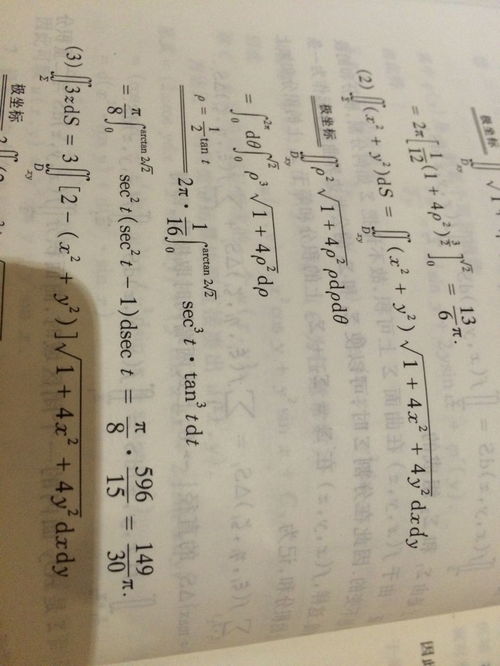 极坐标
= 2π[1/12 (1 + 4ρ²)^{3/2}]_0^{√2} = 13/6 π.
(2) ∬_Σ (x² + y²)dS = ∬_{D_{xy}} (x² + y²) √(1 + 4x² + 4y²) dxdy
极坐标 ∬_{D_{xy}} ρ² √(1 + 4ρ²) ρdρdθ
= ∫_0^{2π} dθ ∫_0^{√2} ρ³ √(1 + 4ρ²) dρ
ρ = 1/2 tan t 2π · 1/16 ∫_0^{arctan 2√2} sec³ t · tan³ t dt
= π/8 ∫_0^{arctan 2√2} sec² t (sec² t − 1)dsec t = π/8 · 596/15 = 149/30 π.
(3) ∬_Σ 3zdS = 3 ∬_{D_{xy}} [2 − (x² + y²)] √(1 + 4x² + 4y²) dxdy
极坐标